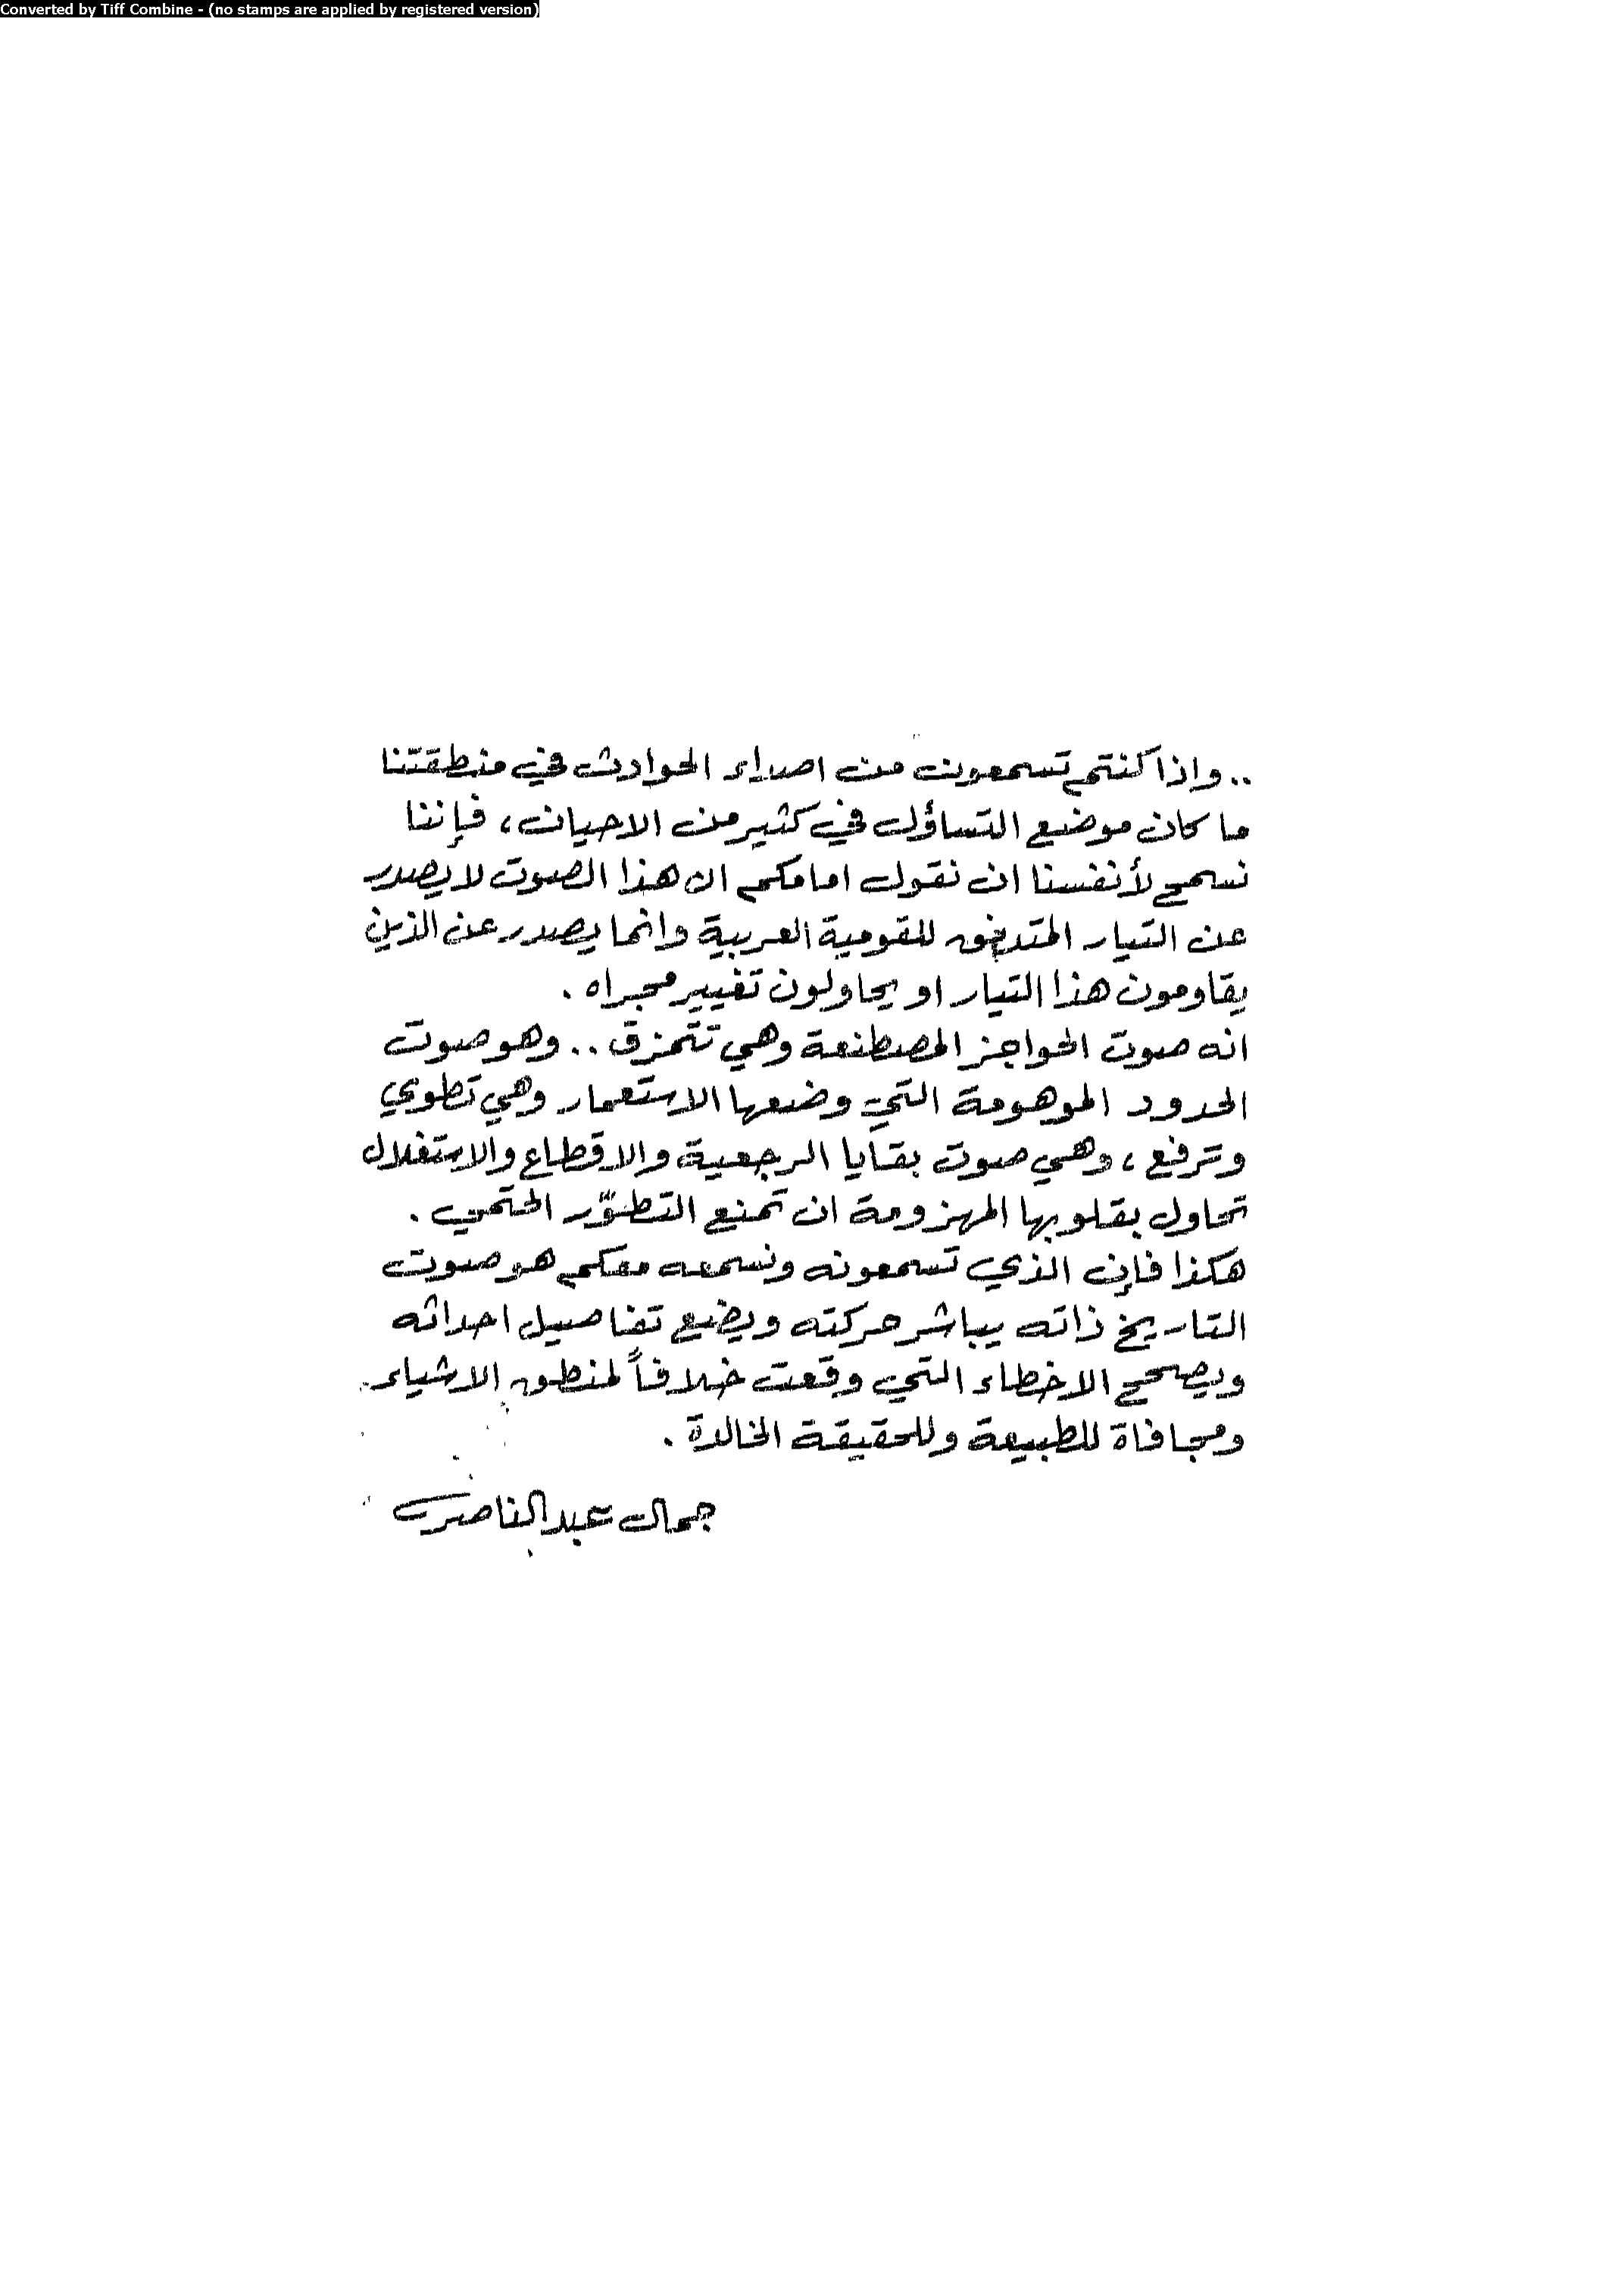 Converted by Tiff Combine - (no stamps are applied by registered version)
.. واذا كنتم تسمعون من اصداء الحوادث في منطقتنا
ما كان موضع التساؤل في كثير من الاحيان ، فإننا
نسمح لأنفسنا ان نقول امامكم ان هذا الصوت لا يصدر
عن التيار المتدفق للقومية العربية وانما يصدر عن الذين
يقاومون هذا التيار او يحاولون تغيير مجراه .
انه صوت الحواجز المصطنعة وهي تتمزق .. وهو صوت
الحدود الموهومة التي وضعها الاستعمار وهي تطوي
وترفع ، وهي صوت بقايا الرجعية والاقطاع والاستغلال
تحاول بقلوبها المهزومة ان تمنع التطوّر الحتمي .
هكذا فإن الذي تسمعونه ونسمعه معكم هو صوت
التاريخ ذاته يباشر حركته ويضع تفاصيل احداثه
ويصحح الاخطاء التي وقعت خلافاً لمنطق الاشياء
ومجافاة للطبيعة وللحقيقة الخالدة .
جمال عبد الناصر